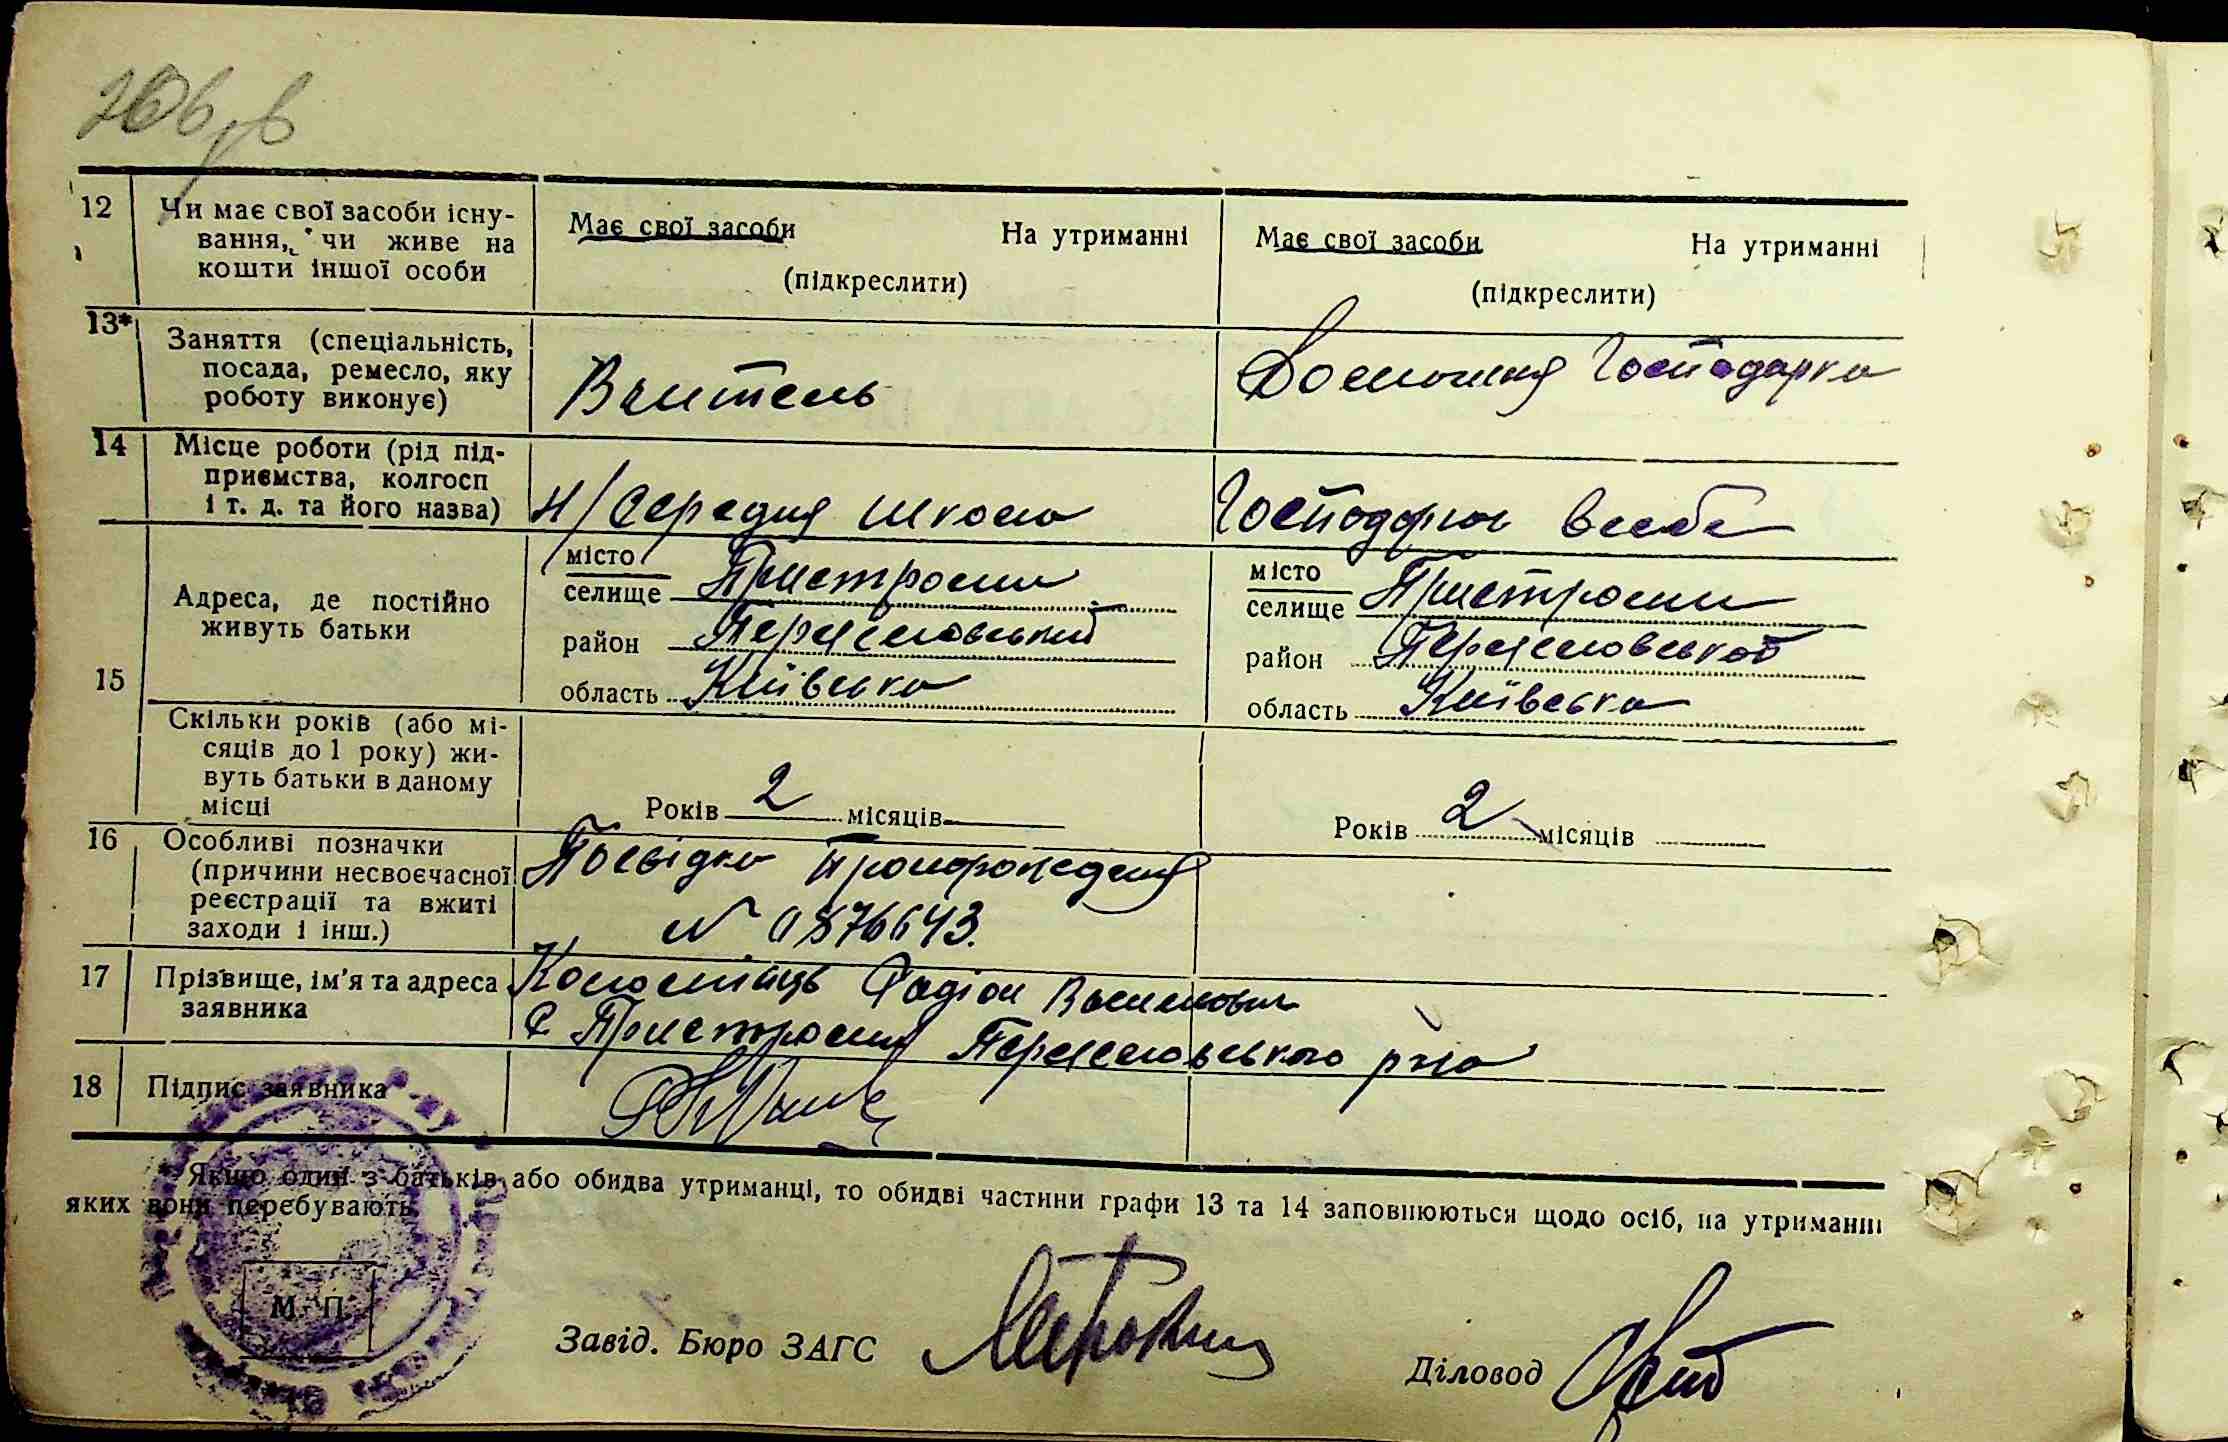 12 Чи має свої засоби існу-
вання, чи живе на
кошти іншої особи
Має свої засоби На утриманні
(підкреслити)
Має свої засоби На утриманні
(підкреслити)
13* Заняття (спеціальність,
посада, ремесло, яку
роботу виконує)
Вчитель
Домошня Господарка
14 Місце роботи (рід під-
приємства, колгосп
і т. д. та його назва)
Н/Середня школа
Господарка
15 Адреса, де постійно
живуть батьки
місто
селище Пристроми
район Переяславський
область Київська
місто
селище Пристроми
район Переяславської
область Київська
Скільки років (або мі-
сяців до 1 року) жи-
вуть батьки в даному
місці
Років 2 місяців
Років 2 місяців
16 Особливі позначки
(причини несвоєчасної
реєстрації та вжиті
заходи і інш.)
Посвідка
N 0876643.
17 Прізвище, ім’я та адреса
заявника
Коломієць Радіон Васильович
с Пристроми Переяславського р-на
18 Підпис заявника
* Якщо один з батьків або обидва утриманці, то обидві частини графи 13 та 14 заповнюються щодо осіб, на утриманні
яких вони перебувають.
М. П.
Завід. Бюро ЗАГС
Діловод